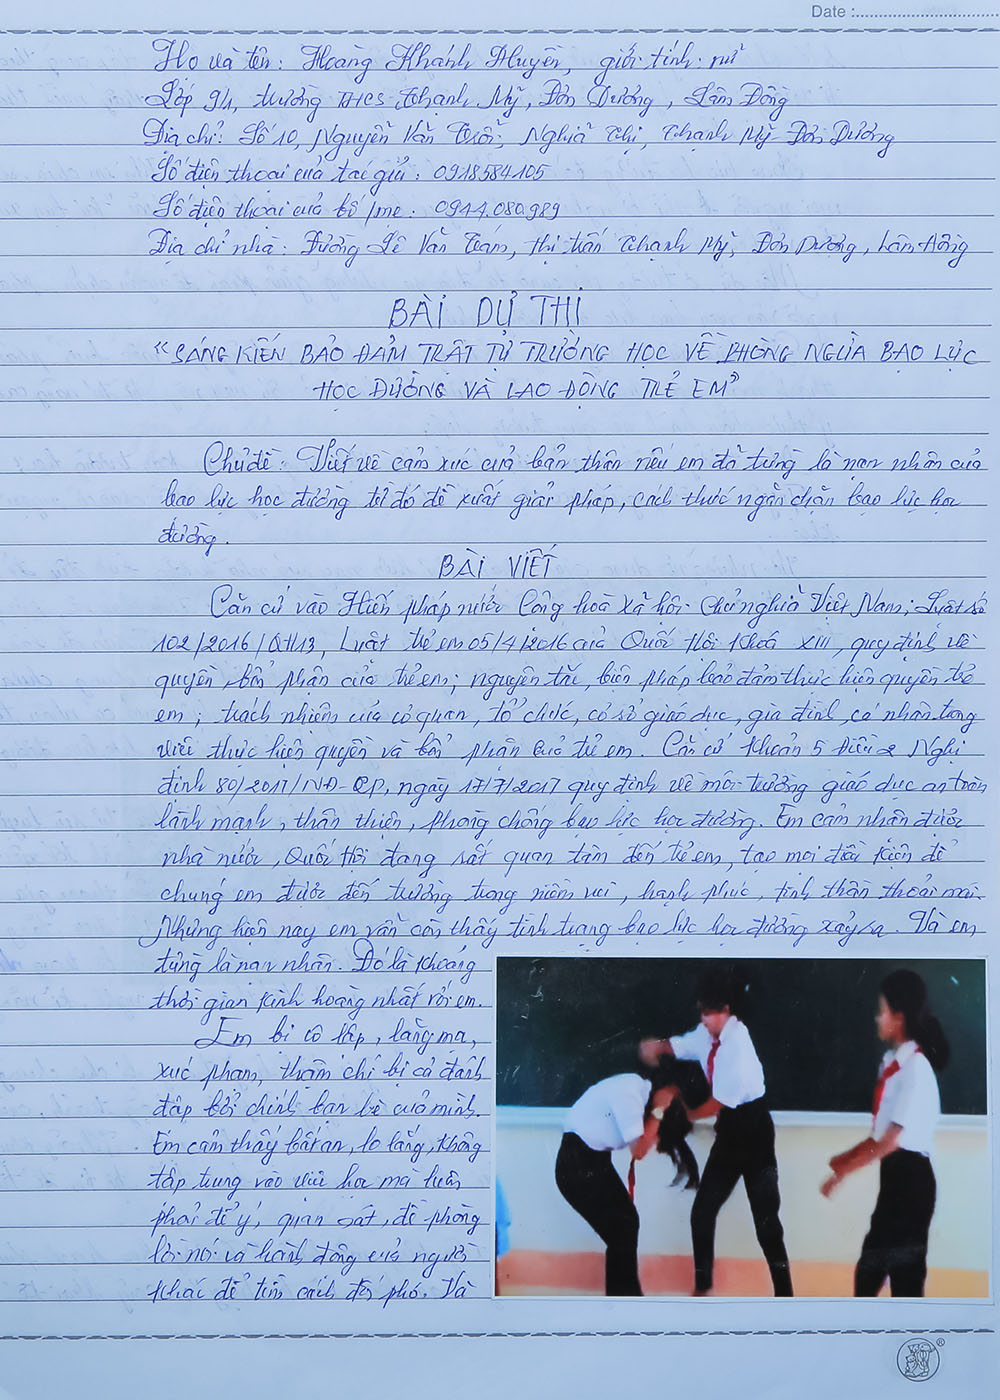 Date :
Họ và tên : Hoàng Khánh Huyền, giới tính nữ
Lớp 9/1, trường THCS Thạnh Mỹ, Đơn Dương, Lâm Đồng
Địa chỉ : Số 10, Nguyễn Văn Trỗi, Nghĩa Thị, Thạnh Mỹ - Đơn Dương
Số điện thoại của tác giả : 0918584105
Số điện thoại của bố / mẹ : 0944.080.989
Địa chỉ nhà : Đường Lê Văn Tám, thị trấn Thạnh Mỹ, Đơn Dương, Lâm Đồng
BÀI DỰ THI
"SÁNG KIẾN BẢO ĐẢM TRẬT TỰ TRƯỜNG HỌC VỀ PHÒNG NGỪA BẠO LỰC
HỌC ĐƯỜNG VÀ LAO ĐỘNG TRẺ EM"
Chủ đề : Viết về cảm xúc của bản thân nếu em đã từng là nạn nhân của
bạo lực học đường từ đó đề xuất giải pháp, cách thức ngăn chặn bạo lực học
đường.
BÀI VIẾT
Căn cứ vào Hiến pháp nước Cộng hoà Xã hội Chủ nghĩa Việt Nam; Luật số
102/2016/QH13, Luật trẻ em 05/4/2016 của Quốc Hội khoá XIII, quy định về
quyền, bổn phận của trẻ em; nguyên tắc, biện pháp bảo đảm thực hiện quyền trẻ
em; trách nhiệm của cơ quan, tổ chức, cơ sở giáo dục, gia đình, cá nhân trong
việc thực hiện quyền và bổn phận của trẻ em. Căn cứ khoản 5 Điều 2 Nghị
định 80/2017/NĐ-CP, ngày 17/7/2017 quy định về môi trường giáo dục an toàn
lành mạnh, thân thiện, phòng chống bạo lực học đường. Em cảm nhận được
nhà nước, Quốc Hội đang rất quan tâm đến trẻ em, tạo mọi điều kiện để
chúng em được đến trường trong niềm vui, hạnh phúc, tinh thần thoải mái.
Nhưng hiện nay em vẫn còn thấy tình trạng bạo lực học đường xảy ra. Và em
từng là nạn nhân. Đó là khoảng
thời gian kinh hoàng nhất với em.
Em bị cô lập, lăng mạ,
xúc phạm, thậm chí bị cả đánh
đập bởi chính bạn bè của mình.
Em cảm thấy bất an, lo lắng, không
tập trung vào việc học mà luôn
phải để ý, quan sát, đề phòng
lời nói và hành động của người
khác để tìm cách đối phó. Và